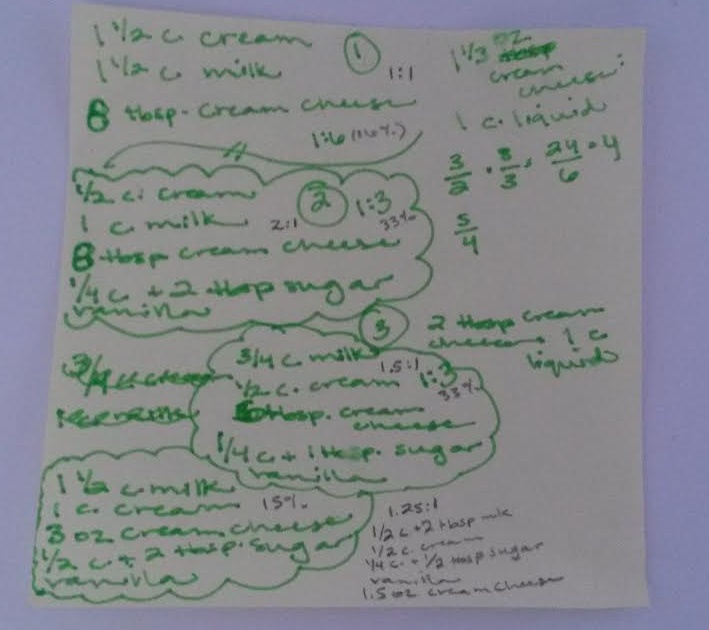 1 1/2 c. cream
1 1/2 c. milk
1
1:1
8 tbsp. cream cheese
1:6 (16%)
1 1/3 oz
cream
cheese:
1 c. liquid
3/2 · 8/3 = 24/6 = 4
5/4
1/2 c. cream
2
1:3
1 c. milk
2:1
33%
8 tbsp cream cheese
1/4 c. + 2 tbsp sugar
vanilla
3
2 tbsp cream
cheese 1 c.
liquid
3/4 c. milk
1.5:1
1/2 c. cream
1:3
33%
tbsp. cream
cheese
1/4 c + 1 tbsp. sugar
vanilla
1 1/2 c. milk
1 c. cream
15%
3 oz cream cheese
1/2 c. + 2 tbsp. sugar
vanilla
1.25:1
1/2 c + 2 tbsp milk
1/2 c. cream
1/4 c. + 1/2 tbsp sugar
vanilla
1.5 oz cream cheese